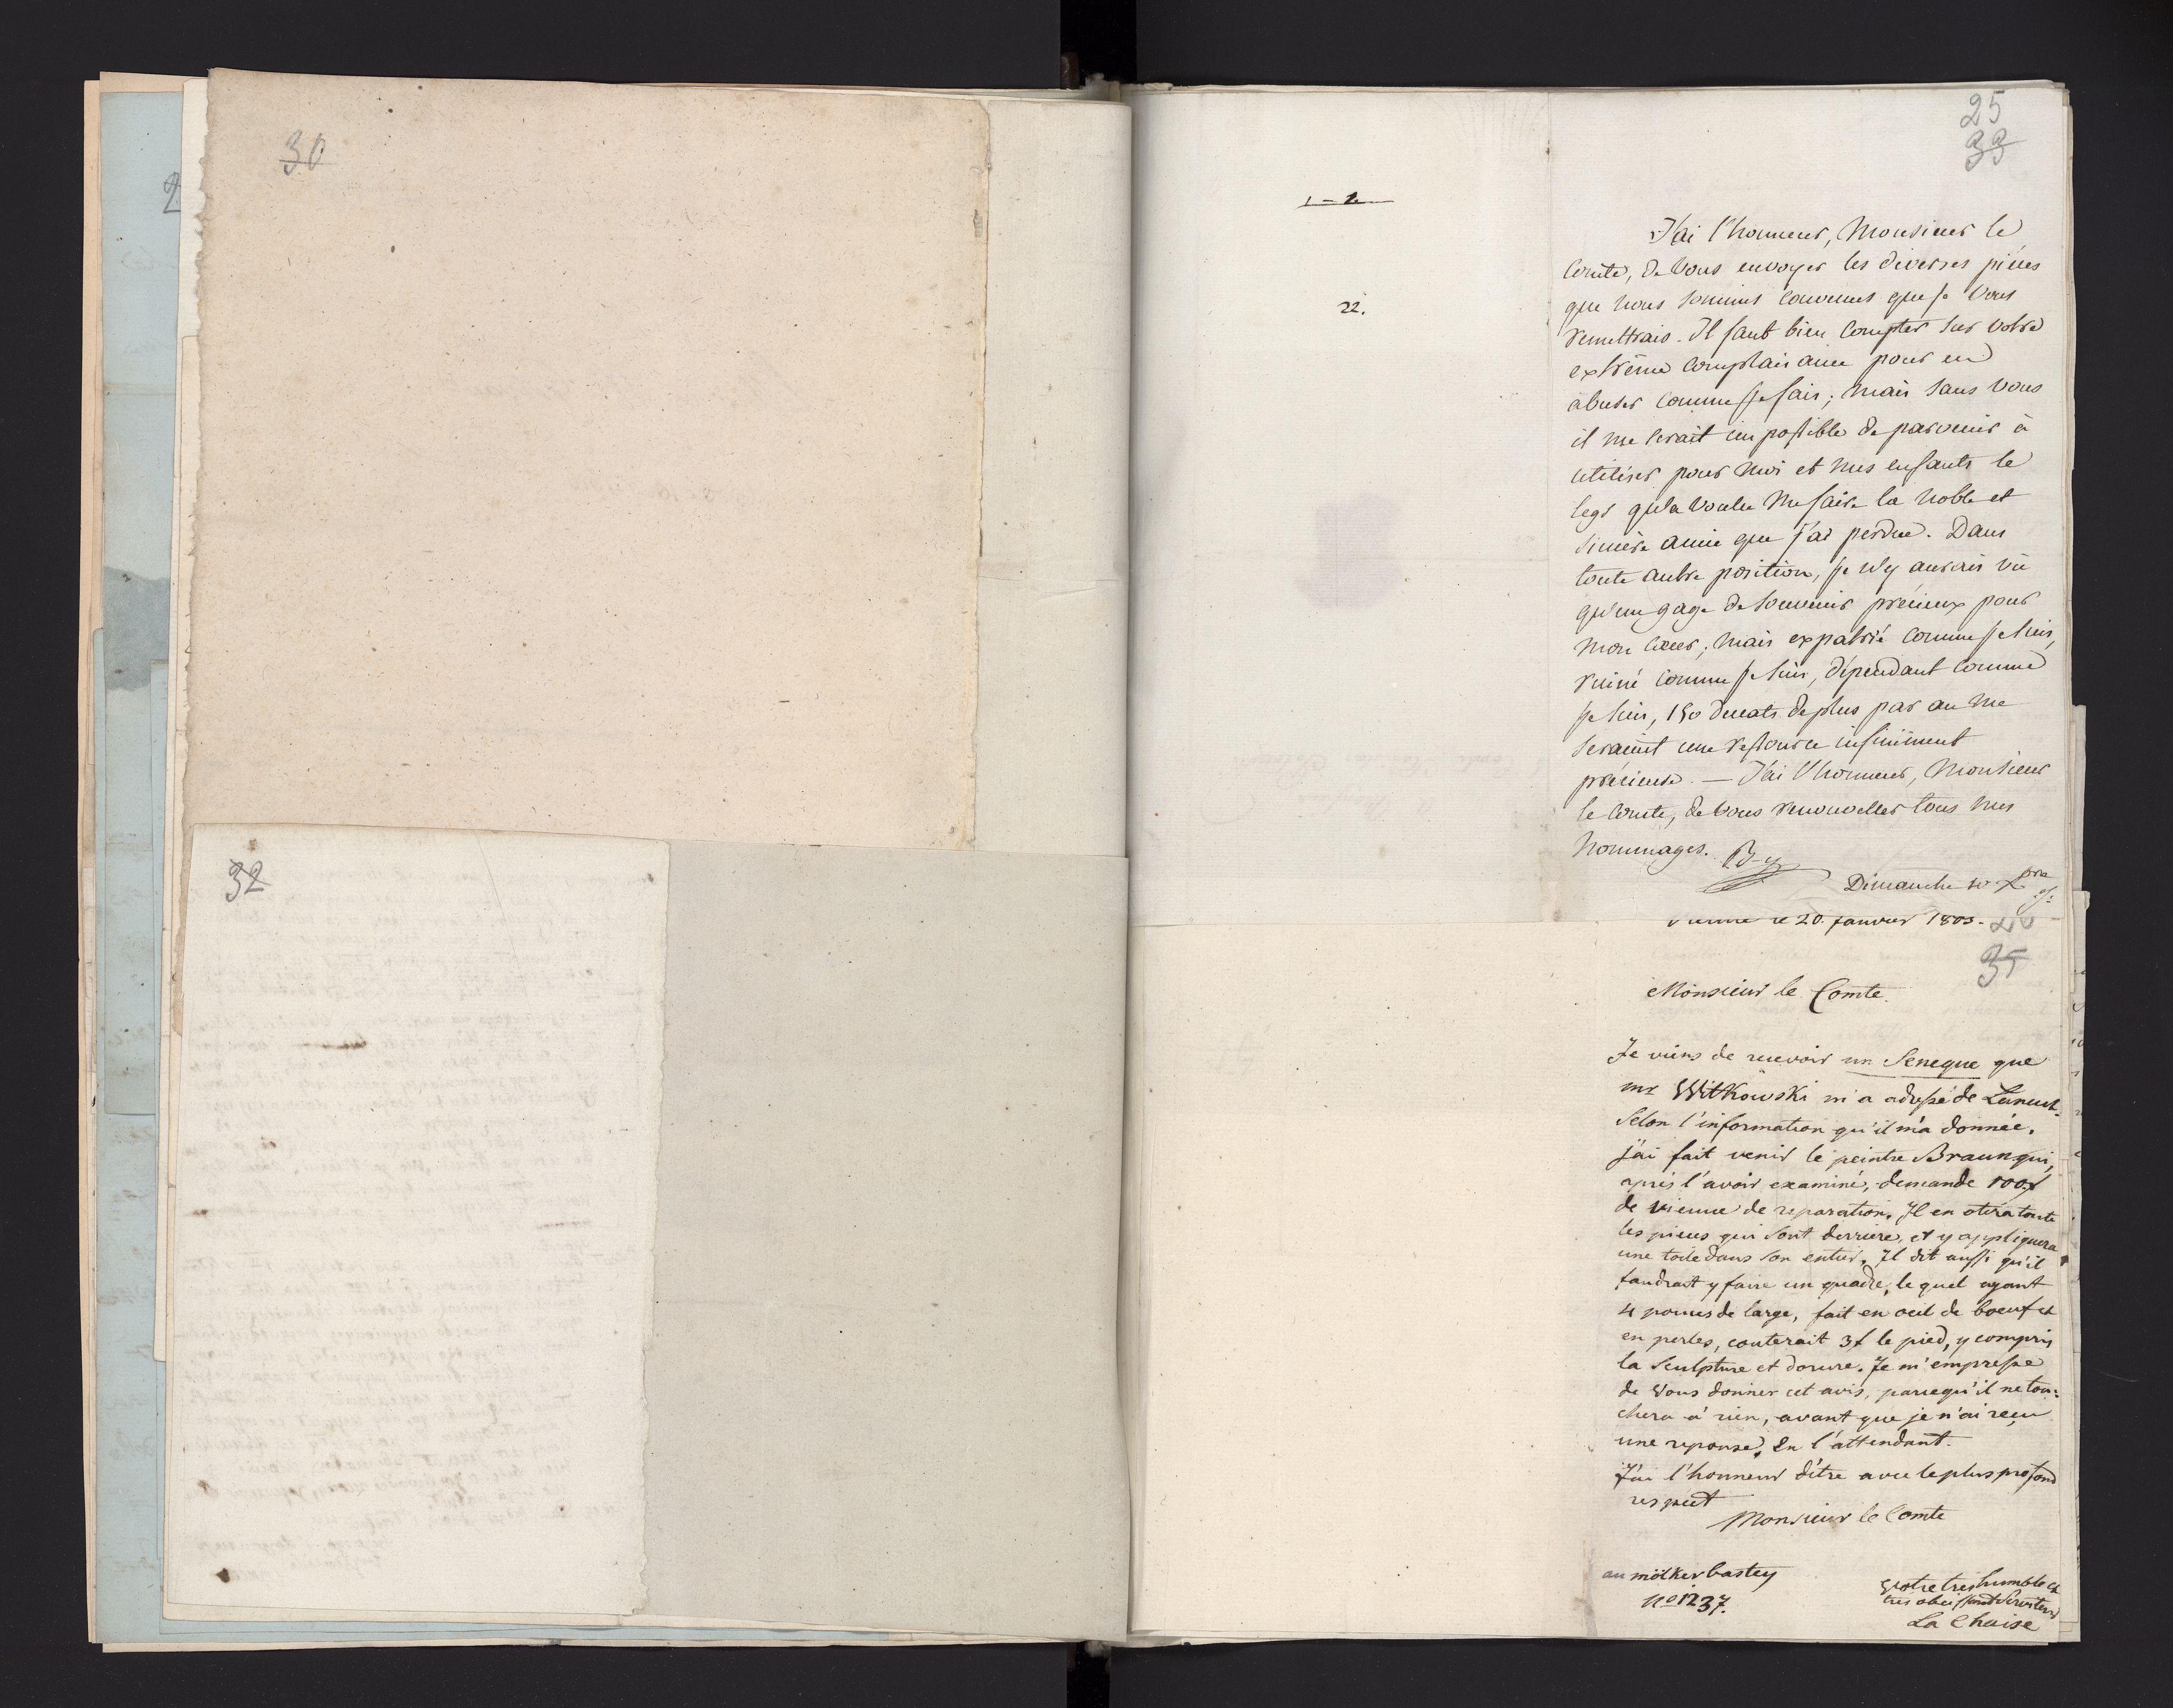 30
32
1 – 2
22.
25
33
J'ai l'honneur, Monsieur le
Comte, de Vous envoyer les diverses pièces
que nous sommes convenus que je Vous
remettrais. Il faut bien compter sur votre
extrême complaisance pour en
abuser comme je fais; mais sans Vous
il me serait impossible de parvenir à
utiliser pour moi et mes enfants le
legs qu'a voulu me faire la noble et
sincère amie que j'ai perdue. Dans
toute autre position, je n'y aurais vû
qu'un gage de souvenir précieux pour
mon cœur; mais expatrié comme je suis,
ruiné comme je suis, dépendant comme
je suis, 150 ducats de plus par an me
seraient une ressource infiniment
précieuse. — J'ai l'honneur, Monsieur
le Comte, de Vous renouveller tous mes
hommages. B-y
Dimanche 10 Xbre
Vienne le 20. janvier 1803.
35
Monsieur le Comte.
Je viens de recevoir un Seneque que
mr Witkowski m'a adressé de
Selon l'information qu'il m'a donnée.
j'ai fait venir le peintre Braun qui,
apris l'avoir examiné, demande 100f
de vienne de reparation. Il en otera toute
les pieces qui sont derriere, et y appliquera
une toile dans son entier. Il dit aussi qu'il
faudrait y faire un quadre, le quel ayant
4 pouces de large, fait en oeil de boeuf et
en perles, couterait 3f le pied, y compris
la sculpture et dorure. Je m'empresse
de Vous donner cet avis, parcequ'il ne tou:
chera a' rien, avant que je n'ai reçu
une reponse. En l'attendant.
J'ai l'honneur d'être avec le plus profond
respect
Monsieur le Comte
au mölker bastey
No 1237.
Votre tres humble et
tres obeissant Serviteur
La Chaise